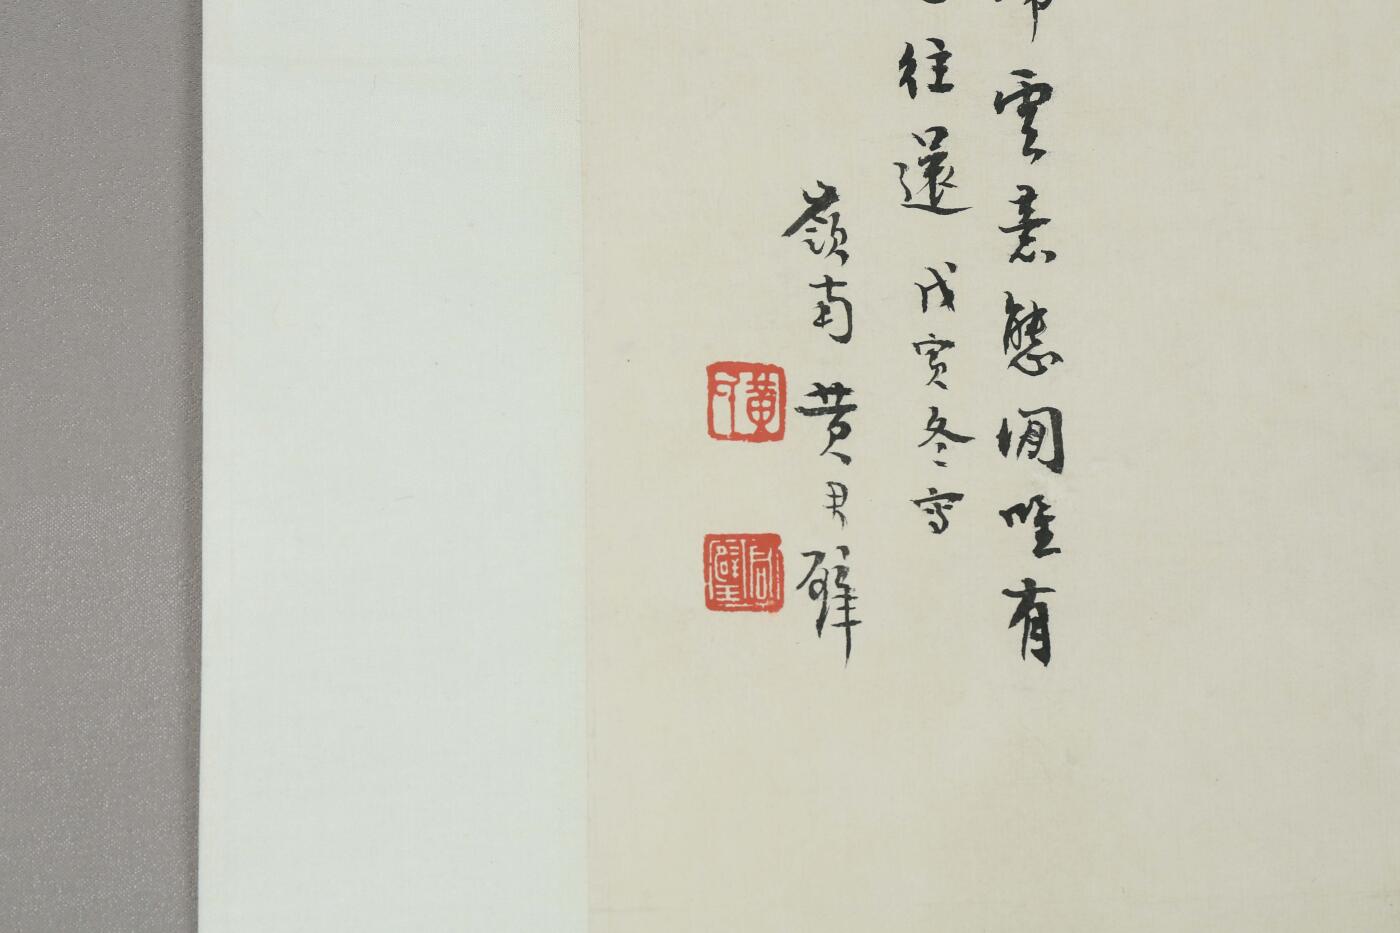 雲意態閒唯有
往還 戊寅冬寫
嶺南黃君璧
黃
君璧